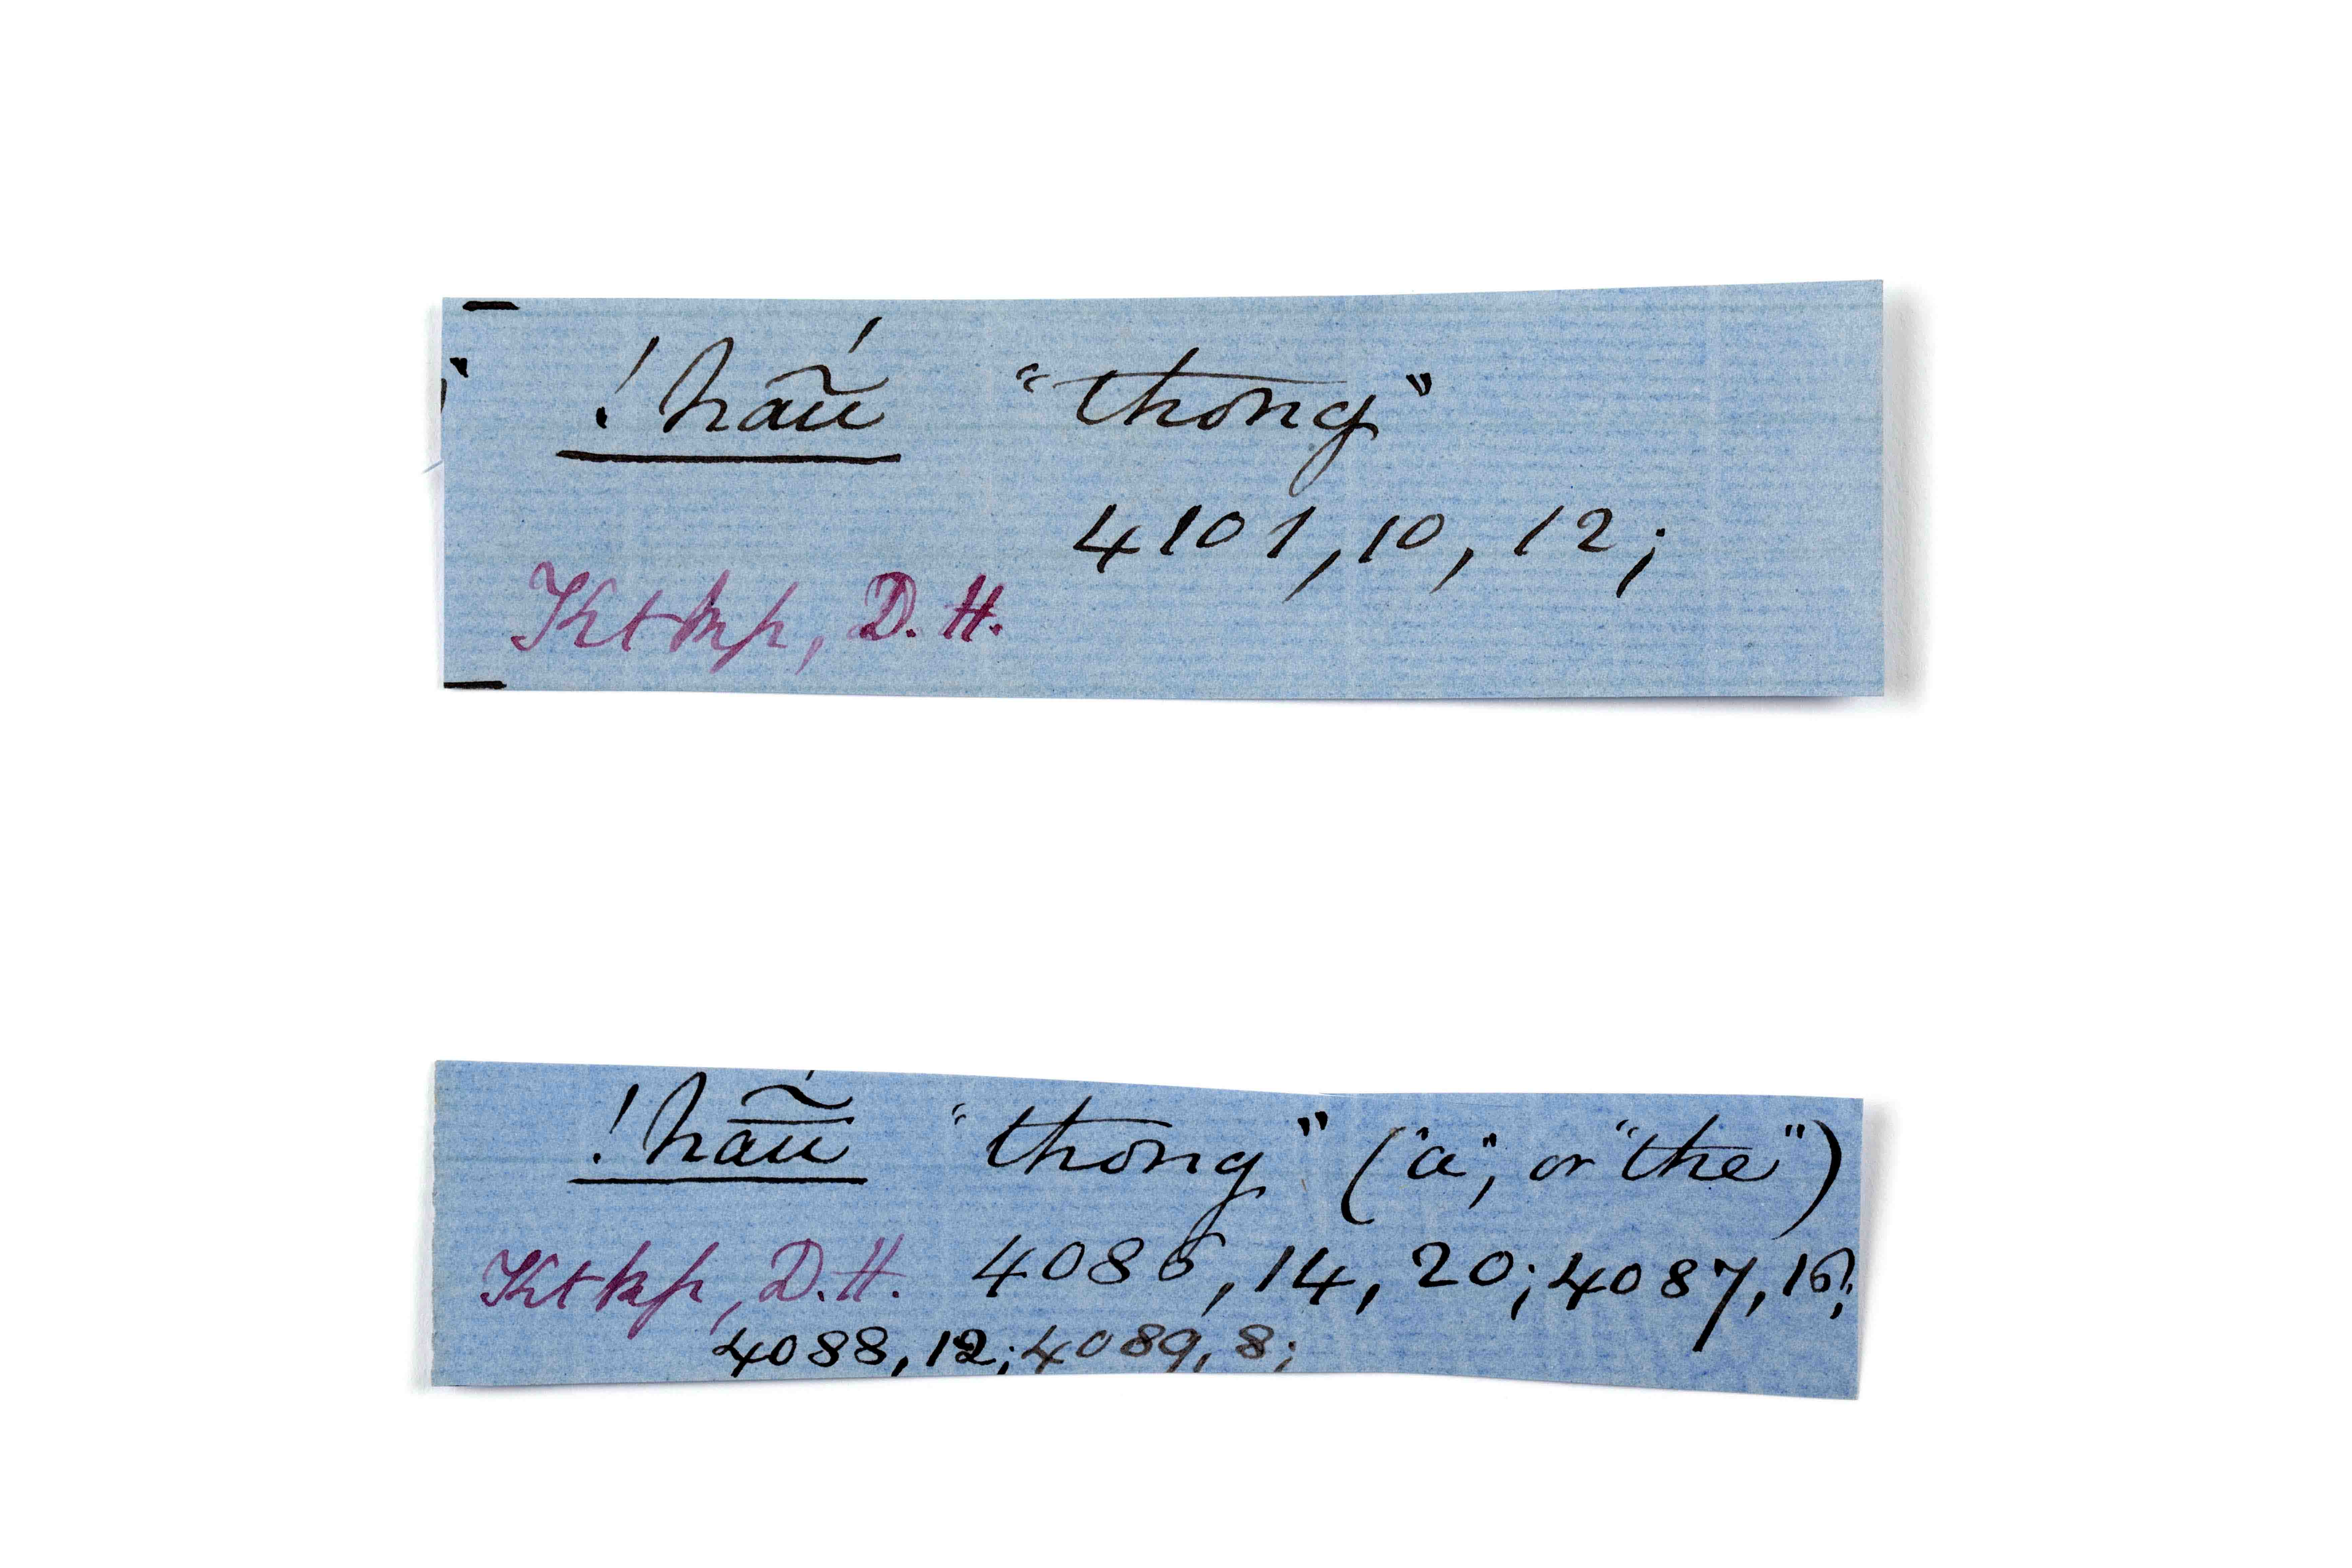 !hãṹ "thong"
4101, 10, 12;
Ktkp, D. H.
!hãṹ "thong" ("a", or "the")
Ktkp, D. H. 4086, 14, 20; 4087, 16;
4088, 12; 4089, 8;